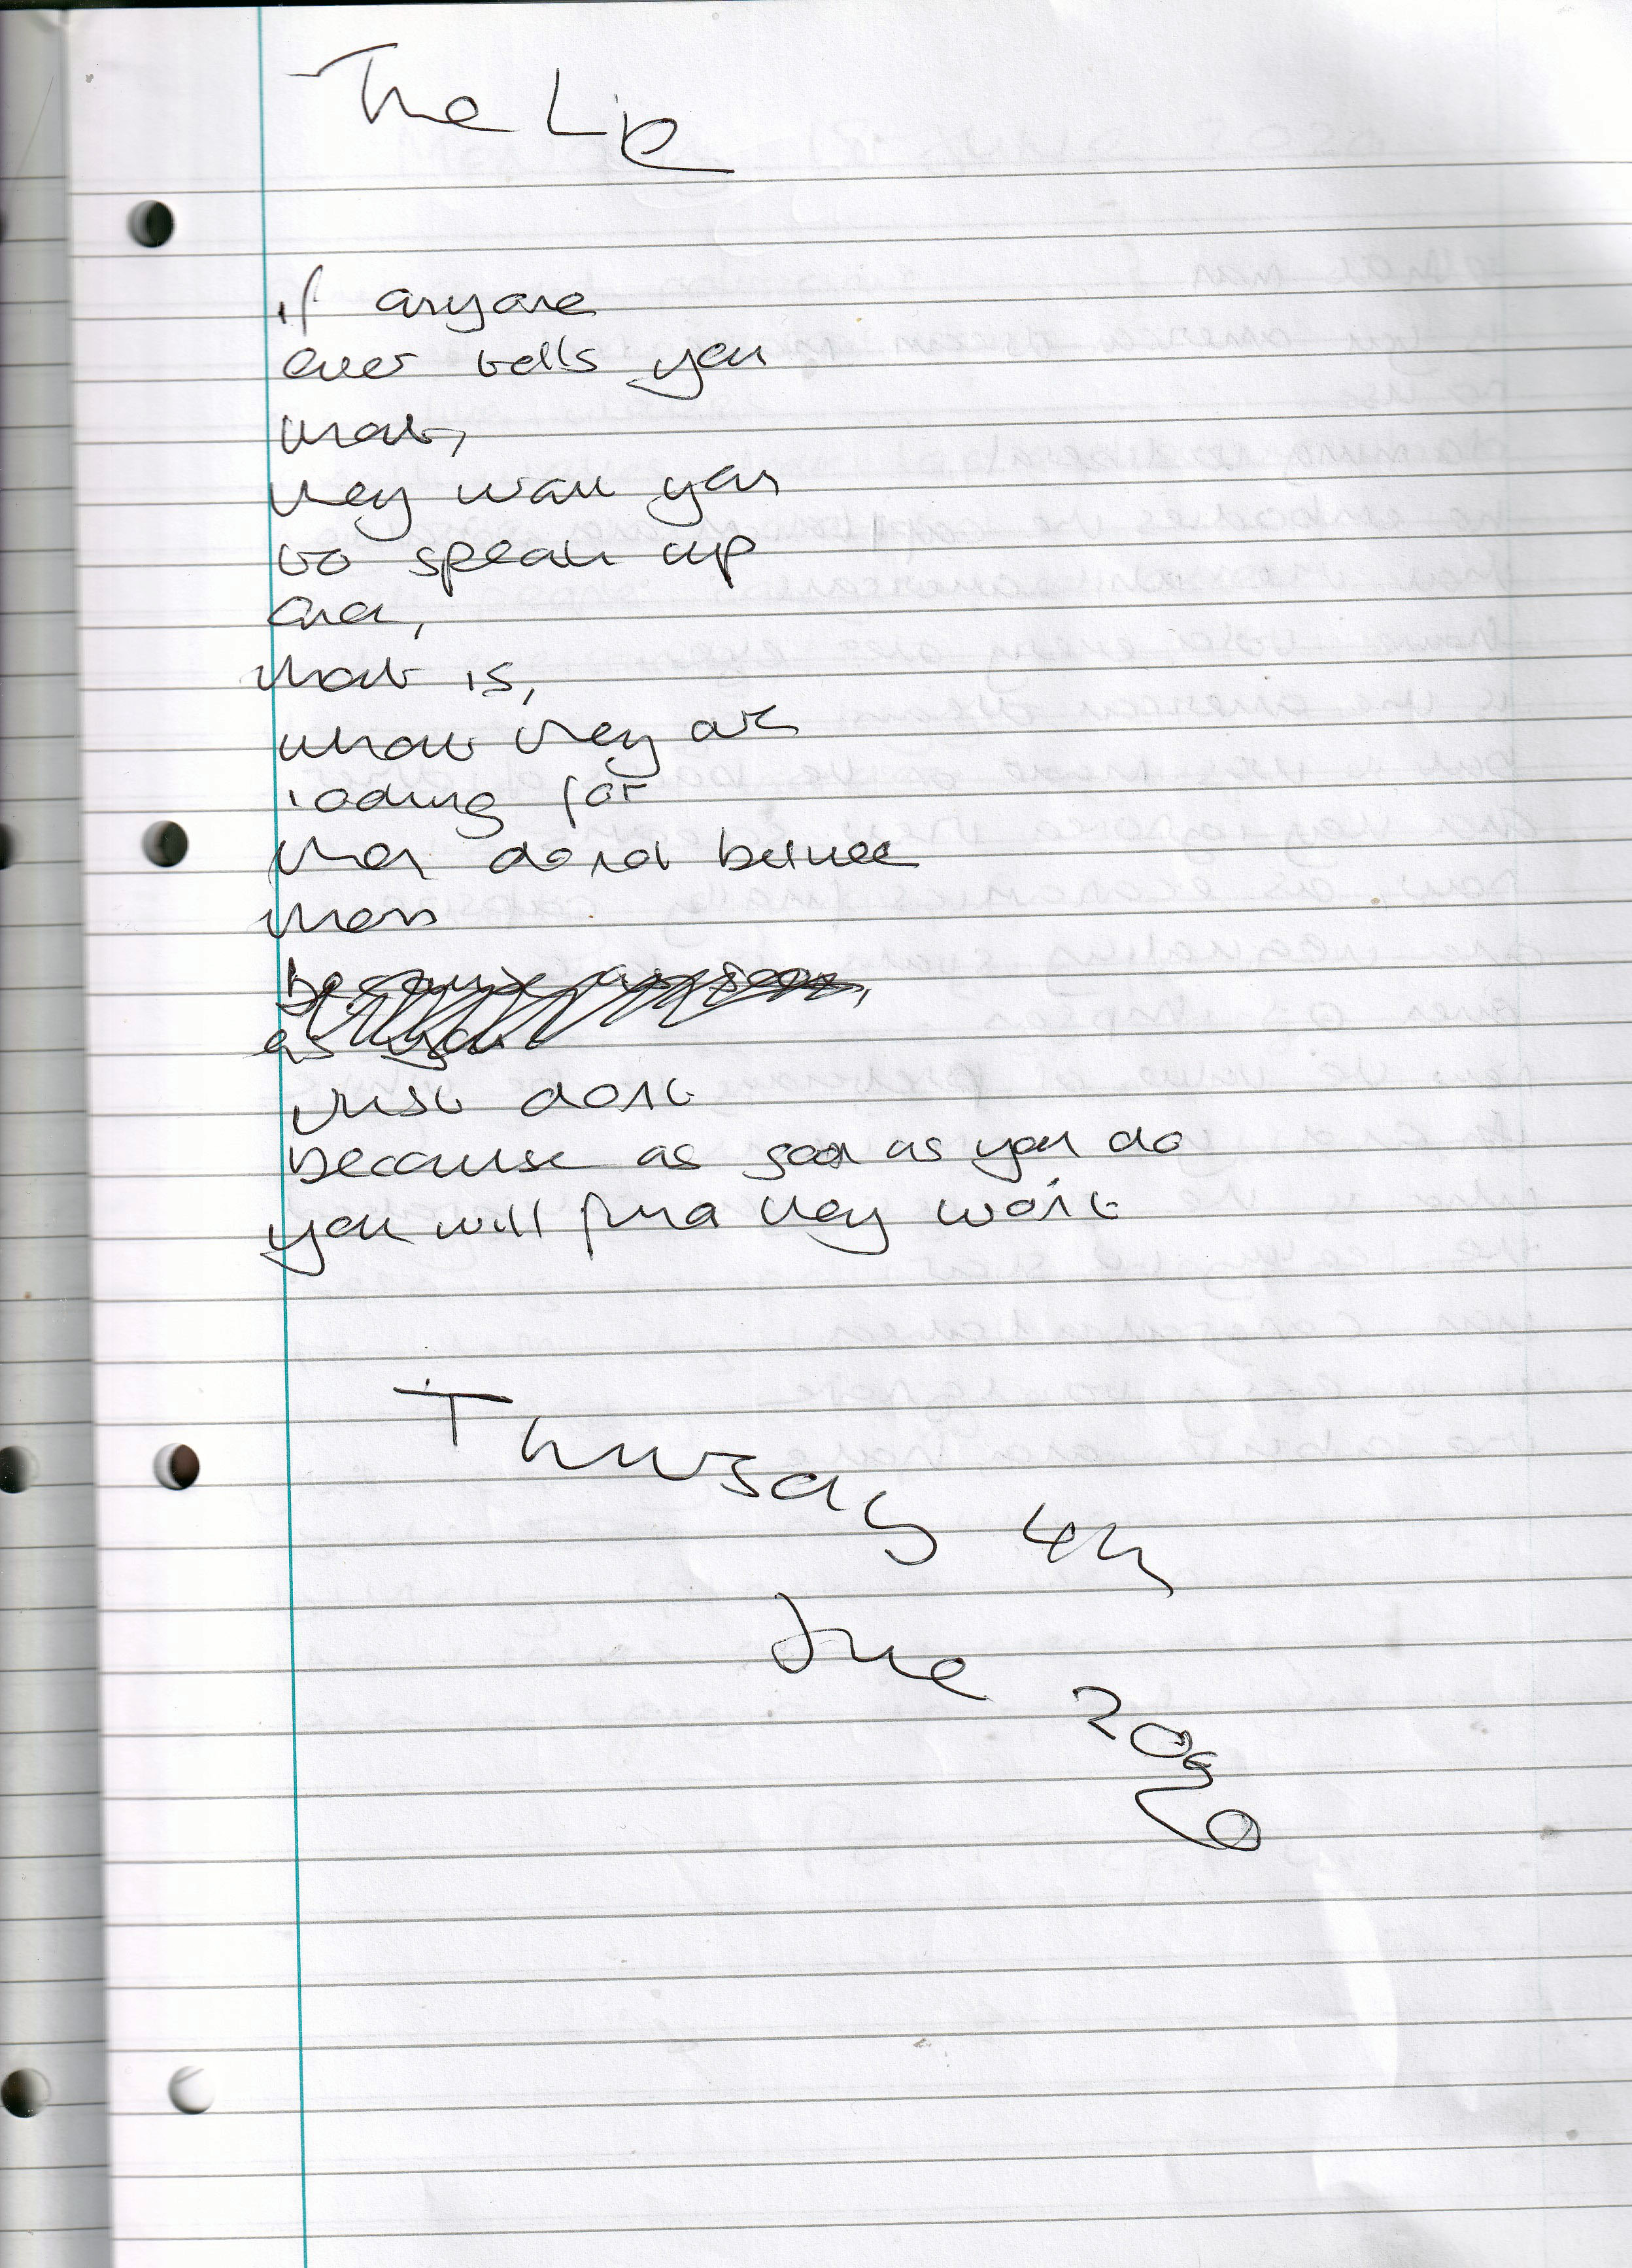 The Lie
if anyone
ever tells you
that,
they want you
to speak up
and,
that is,
what they are
looking for
then do not believe
them
because as soon,
as you
just don't
because as soon as you do
you will find they won't
Thursday 4th
June 2020